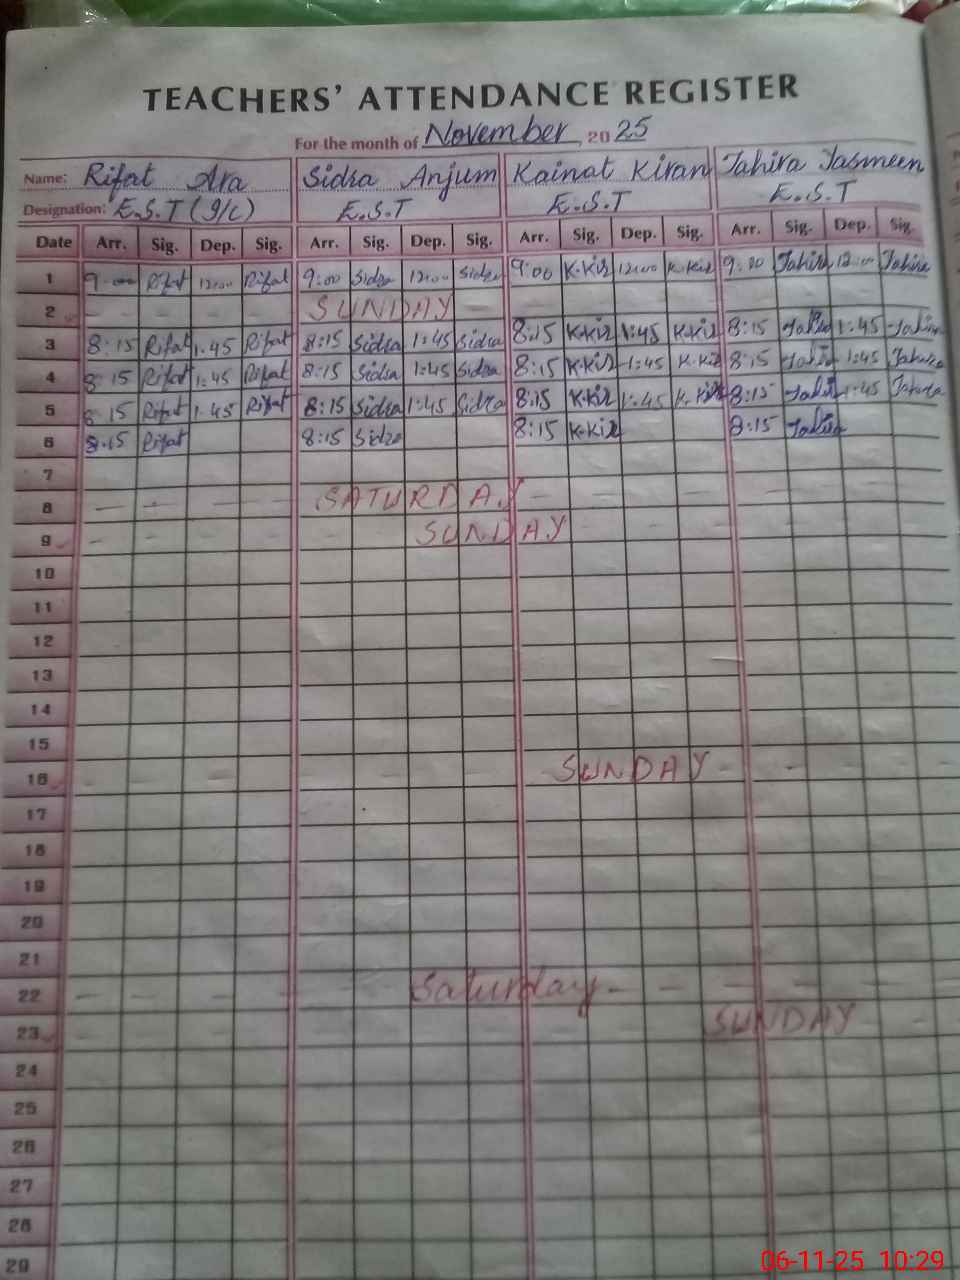 TEACHERS' ATTENDANCE REGISTER
For the month of November, 2025
Name: Rifat Ara Sidra Anjum Kainat Kiran Tahira Jasmeen
Designation: E.S.T (I/C) E.S.T E.S.T E.S.T
Date Arr. Sig. Dep. Sig. Arr. Sig. Dep. Sig. Arr. Sig. Dep. Sig. Arr. Sig. Dep. Sig.
1 9:00 Rifat 12:00 Rifat 9:00 Sidra 12:00 Sidra 9:00 K.Kir 12:00 K.Kir 9:00 Tahira 12:00 Tahira
2 SUNDAY
3 8:15 Rifat 1:45 Rifat 8:15 Sidra 1:45 Sidra 8:15 K.Kir 1:45 K.Kir 8:15 Tahira 1:45 Tahira
4 8:15 Rifat 1:45 Rifat 8:15 Sidra 1:45 Sidra 8:15 K.Kir 1:45 K.Kir 8:15 Tahira 1:45 Tahira
5 8:15 Rifat 1:45 Rifat 8:15 Sidra 1:45 Sidra 8:15 K.Kir 1:45 K.Kir 8:15 Tahira 1:45 Tahira
6 8:15 Rifat 8:15 Sidra 8:15 K.Kir 8:15 Tahira
7
8 SATURDAY
9 SUNDAY
10
11
12
13
14
15
16 SUNDAY
17
18
19
20
21
22 Saturday
23 SUNDAY
24
25
26
27
28
29
06-11-25 10:29